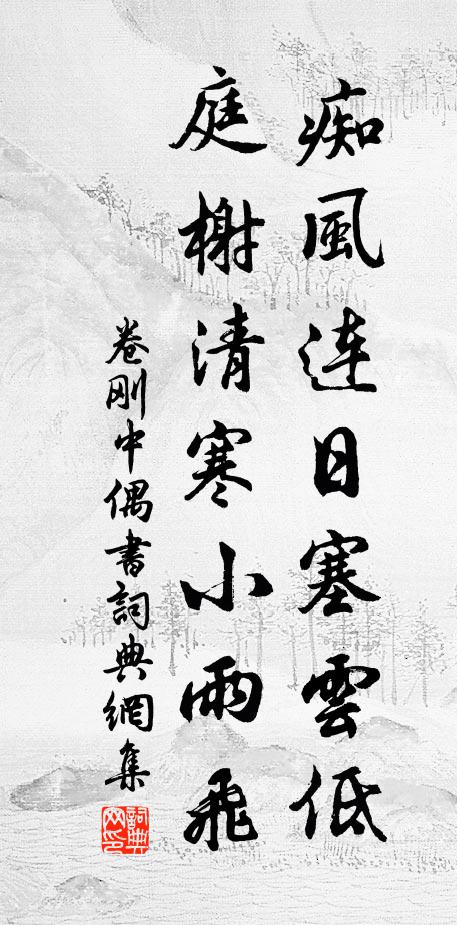 痴風连日塞雲低
庭榭清寒小雨飛
卷刚中偶書詞典網集
詞典
网印